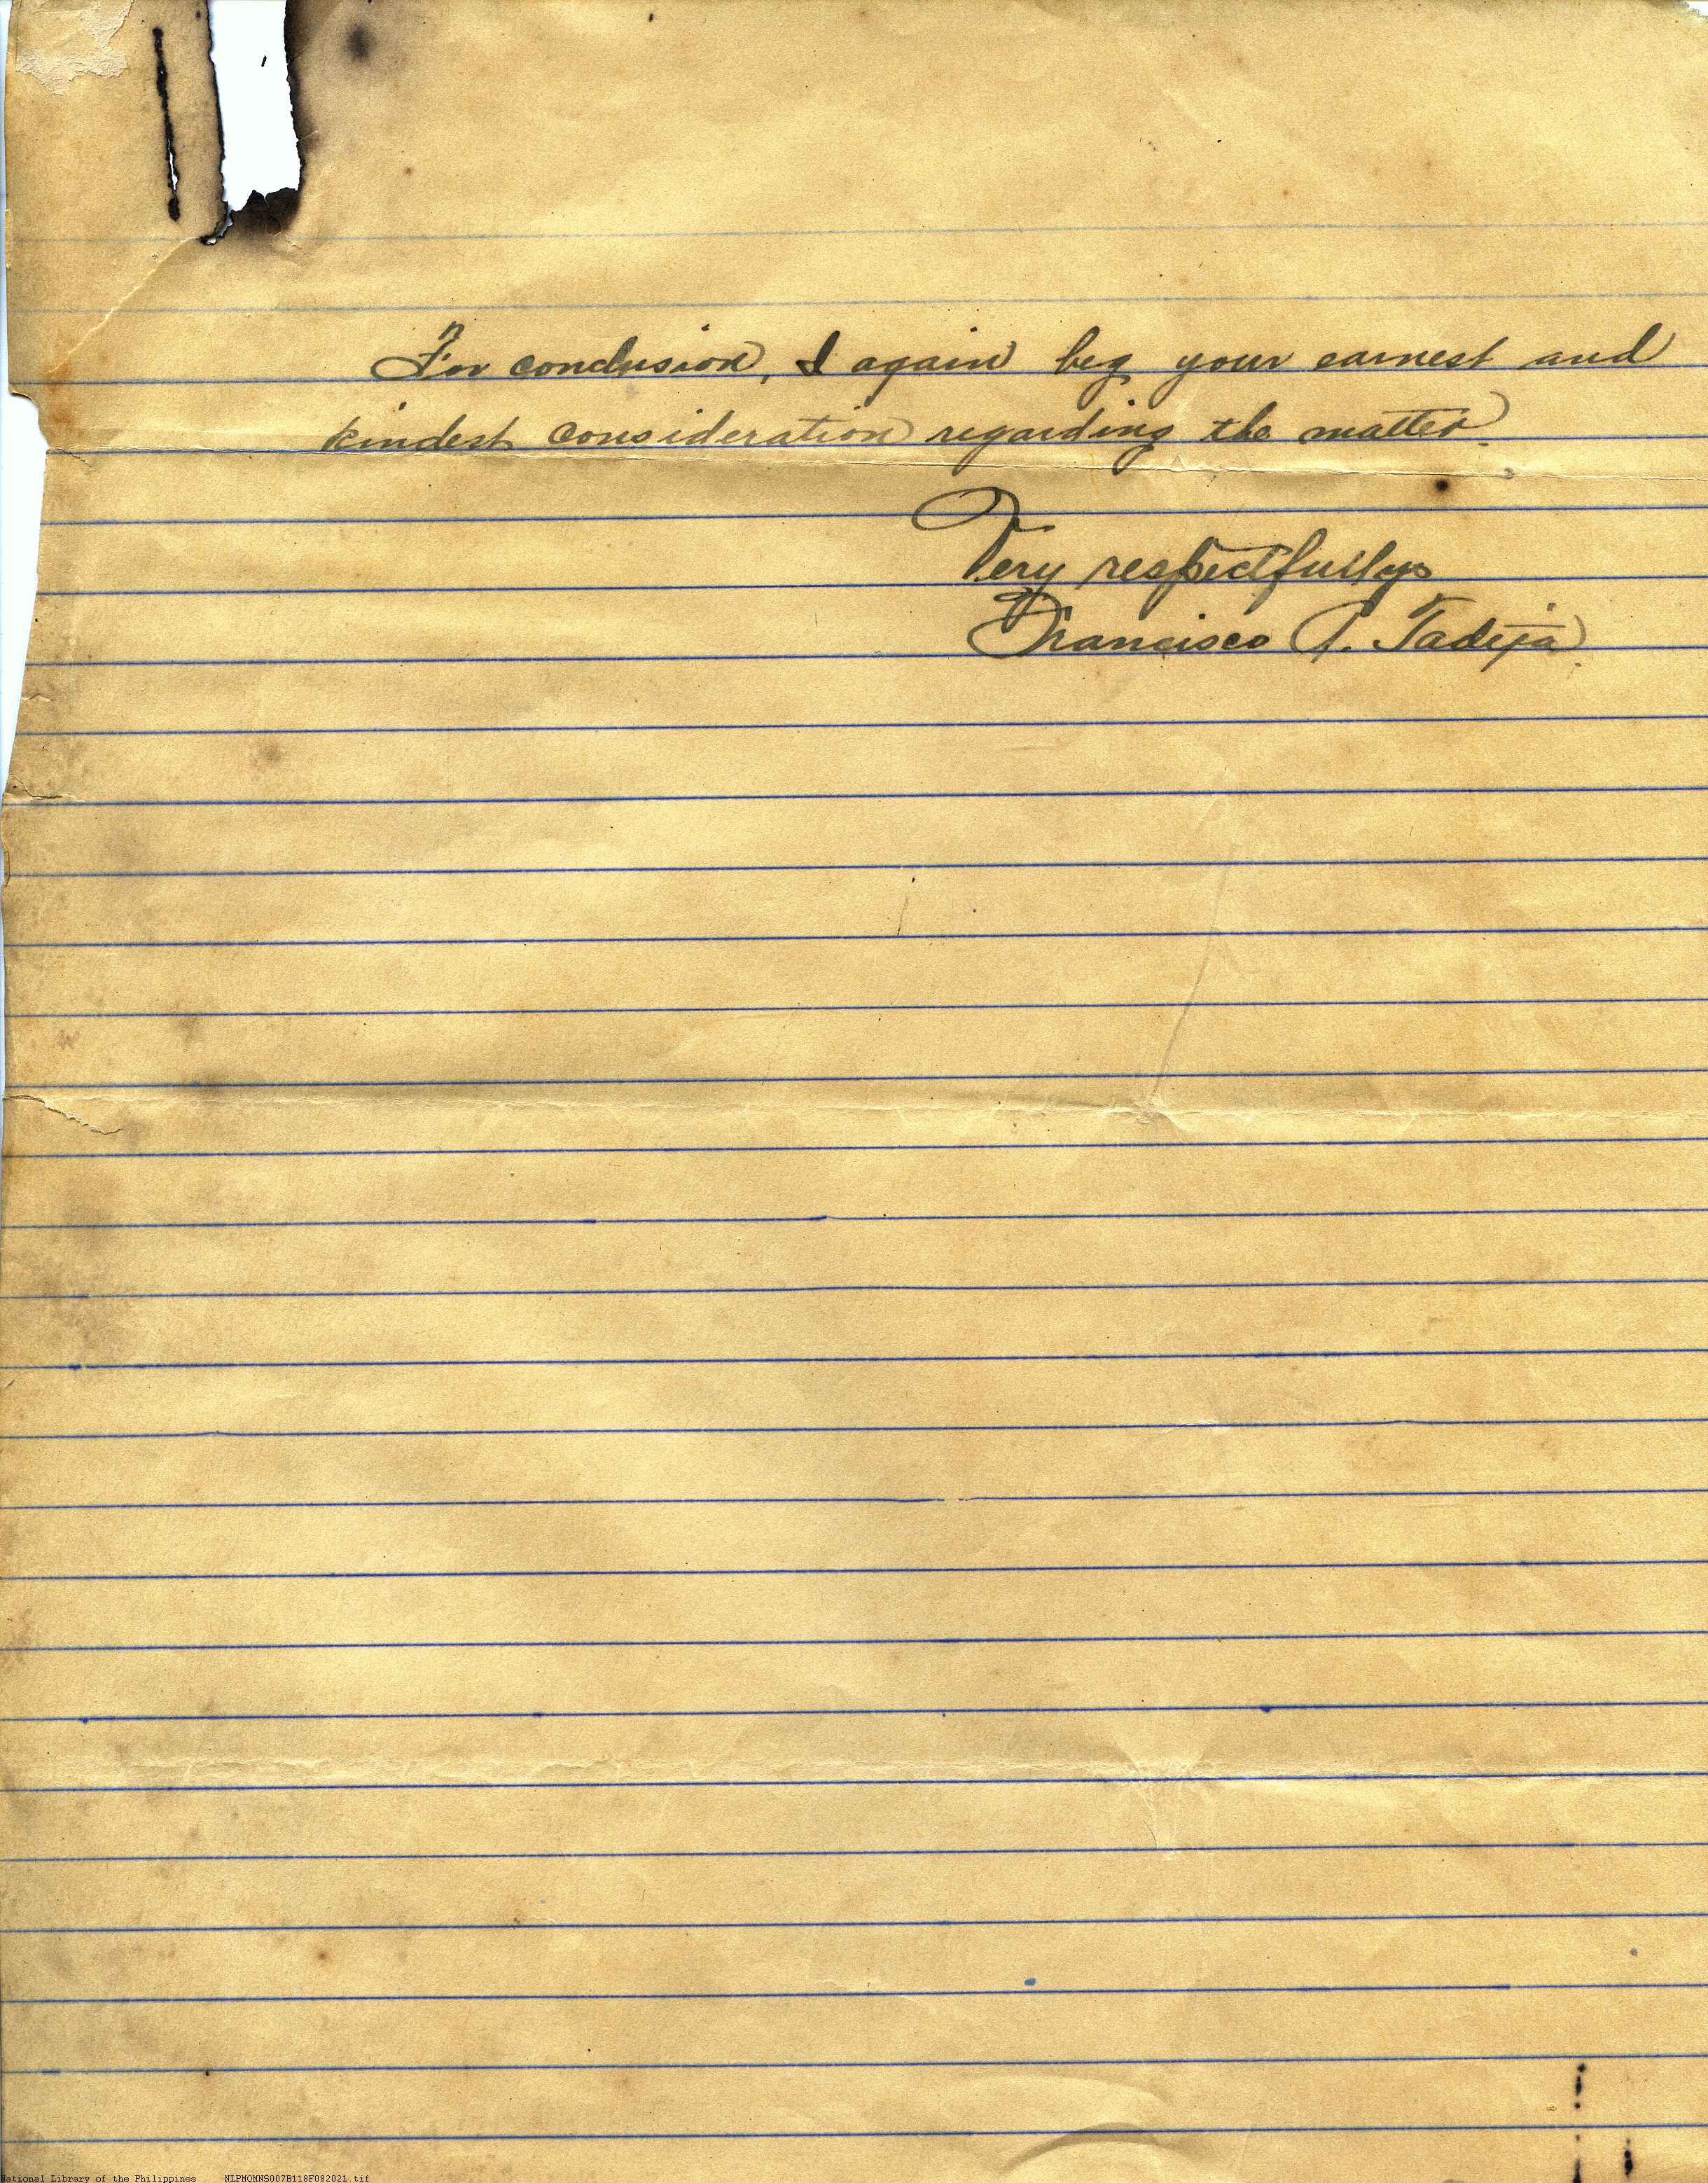 For conclusion, I again beg your earnest and
kindest consideration regarding the matter.
Very respectfully
Francisco Tadeja
National Library of the Philippines NLPMQMNS007B118F082021.tif